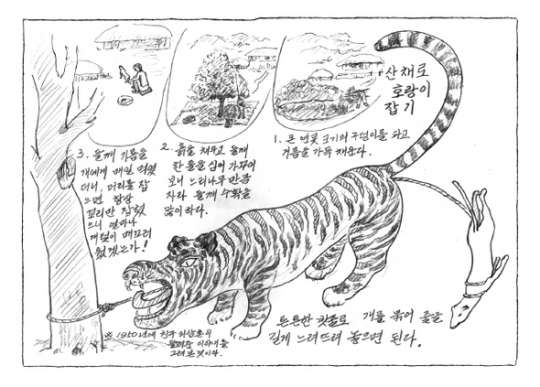 산 채로
호랑이
잡기
1. 큰 연못 크기의 구덩이를 파고
거름을 가득 채운다.
2. 흙을 채우고 들깨
한 톨을 심어 가꾸어
보니 느티나무 만큼
자라 들깨 수확을
많이 하다.
3. 들깨 기름을
개에게 매일 먹였
더니, 머리를 잡
으면
꼬리만 잡혔
으니 얼마나
개털이 매끄러
웠겠는가!
튼튼한 칡줄로 개를 묶어 줄을
길게 느러뜨려 놓으면 된다.
※ 1950년에 친구
들려준 이야기를
그려본것이다.